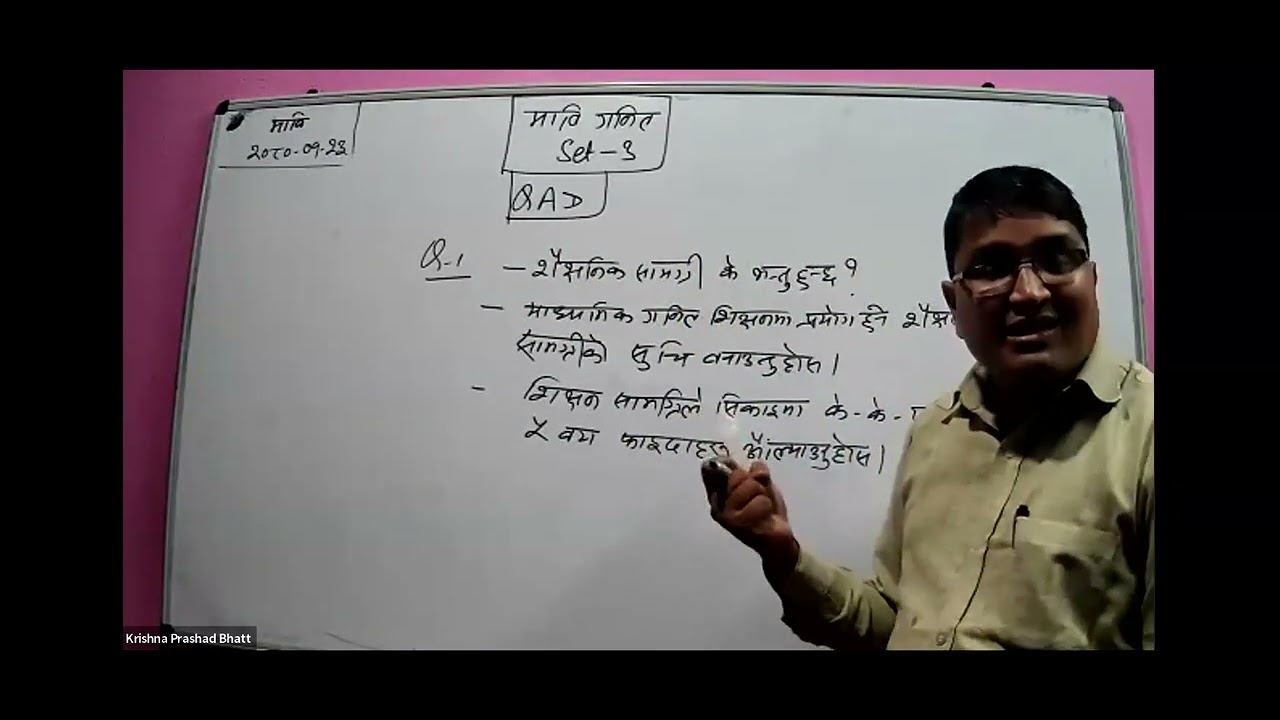 मावि
२०८०-०१-२३
मावि गनित
Set-3
QAD
Q.1 – शैक्षनिक सामग्री के भन्नुहुन्छ ?
– माध्यमिक गनित शिक्षनमा प्रयोग हुने
सामग्रीको सुचि बनाउनुहोस।
– शिक्षन सामग्रिले सिकाइमा के-के-
फाइदाहरु औंल्याउनुहोस।
Krishna Prashad Bhatt